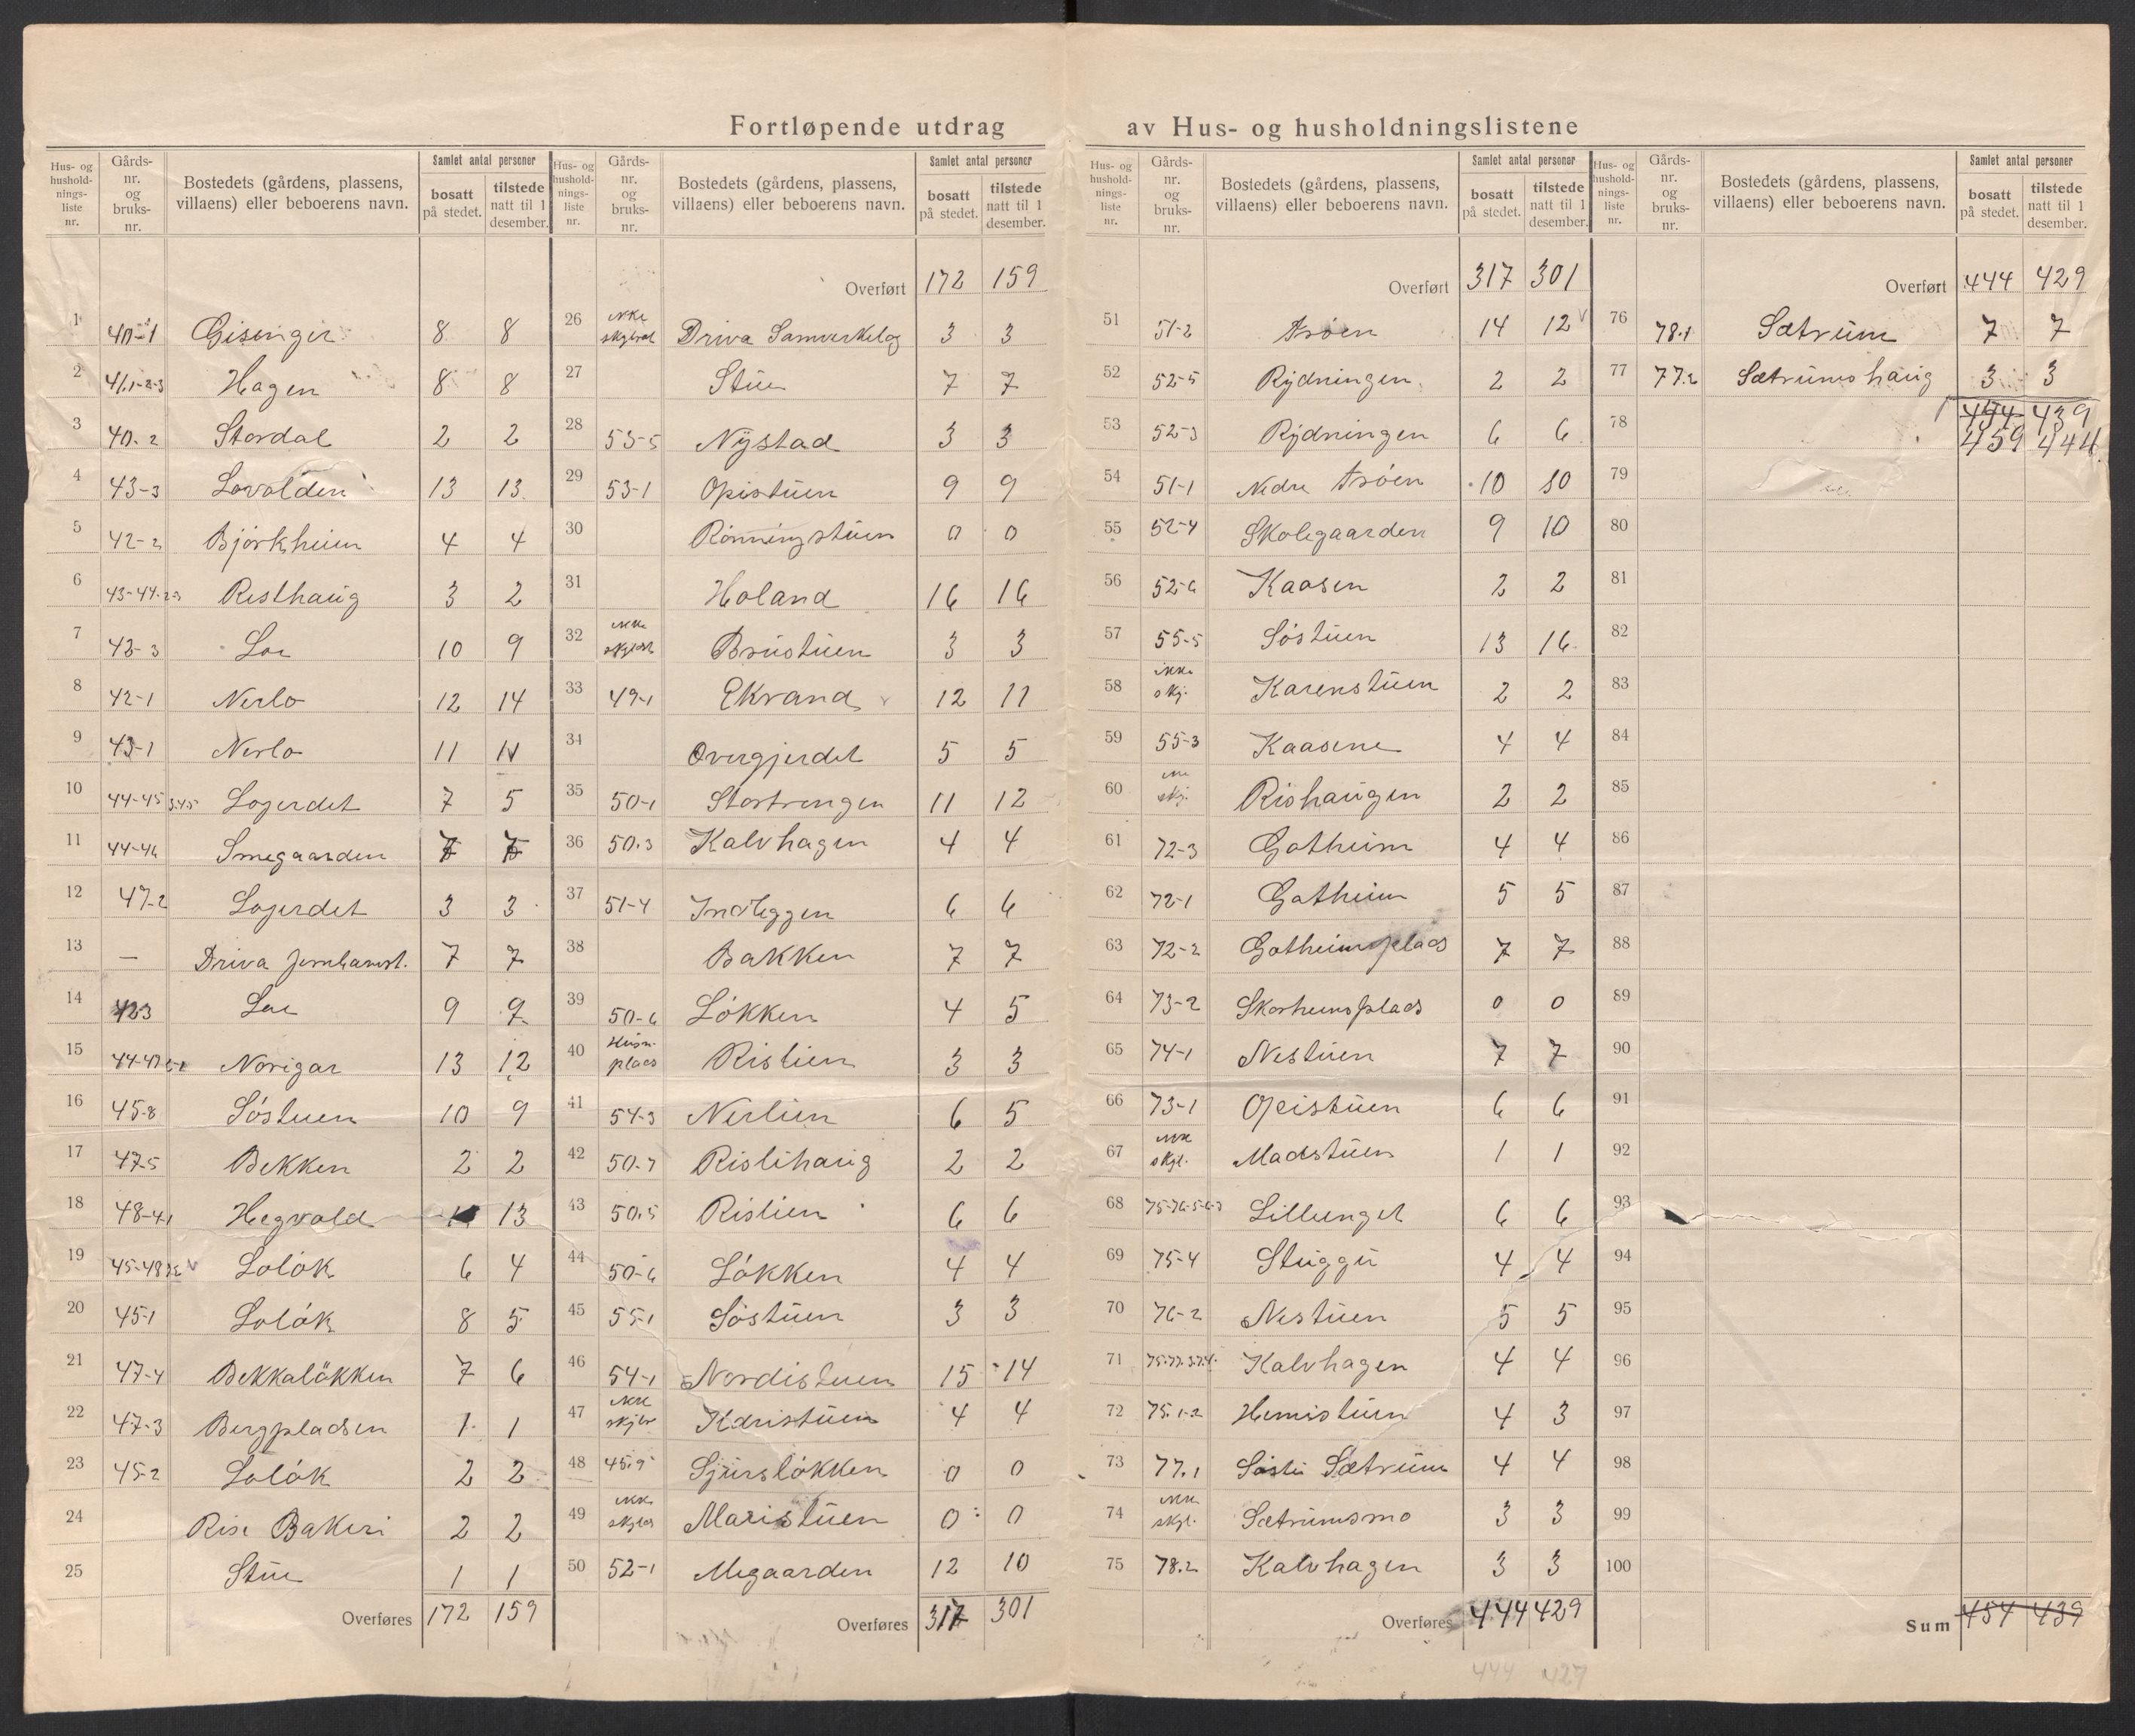 Fortløpende utdrag av Hus- og husholdningslistene
Hus- og husholdningsliste nr. | Gårds-nr. og bruks-nr. | Bostedets (gårdens, plassens, villaens) eller beboerens navn. | Samlet antal personer bosatt på stedet. | tilstede natt til 1 desember.
1 40-1 Gisinger 8 8
2 41.1-2-3 Hagen 8 8
3 40-2 Stordal 2 2
4 43-3 Lovolden 13 13
5 42-2 Bjørkheim 4 4
6 43-44-2-3 Risthaug 3 2
7 42-3 Loe 10 9
8 42-1 Nerlo 12 14
9 43-1 Nerlo 11 11
10 44-45 3.45 Logerdet 7 5
11 44-46 Smegaarden 7 7
12 47-2 Logerdet 3 3
13 — Driva Jernbanest. 7 7
14 423 Loe 9 9
15 44-47 Norigar 13 12
16 45-8 Söstuen 10 9
17 47-5 Bekken 2 2
18 48-4.1 Hegvold 13
19 45-48 Lolök 6 4
20 45-1 Lolök 8 5
21 47-4 Bekkalökken 7 6
22 47-3 Bergpladsen 1 1
23 45-2 Lolök 2 2
24 Rise Bakeri 2 2
25 Stue 1 1
Overføres 172 159
Hus- og husholdningsliste nr. | Gårds-nr. og bruks-nr. | Bostedets (gårdens, plassens, villaens) eller beboerens navn. | Samlet antal personer bosatt på stedet. | tilstede natt til 1 desember.
Overført 172 159
26 ikke skyldsat Driva Samvirkelag 3 3
27 Stue 7 7
28 53-5 Nystad 3 3
29 53-1 Opistuen 9 9
30 Rönningstuen 0 0
31 Holand 16 16
32 ikke skyldsat Brustuen 3 3
33 49-1 Ekrand 12 11
34 Overgjerdet 5 5
35 50-1 Stortrengen 11 12
36 50.3 Kalvhagen 4 4
37 51-4 Indleggen 6 6
38 Bakken 7 7
39 50-6 Lökken 4 5
40 Husm. plads Rislien 3 3
41 54-3 Nerlien 6 5
42 50-7 Rislihaug 2 2
43 50.5 Rislien 6 6
44 50-6 Lökken 4 4
45 55-1 Söstuen 3 3
46 54-1 Nordistuen 15 14
47 ikke skyldsat Karistuen 4 4
48 45.9 Sjurslökken 0 0
49 ikke skylds Maristuen 0 0
50 52-1 Megaarden 12 10
Overføres 317 301
Hus- og husholdningsliste nr. | Gårds-nr. og bruks-nr. | Bostedets (gårdens, plassens, villaens) eller beboerens navn. | Samlet antal personer bosatt på stedet. | tilstede natt til 1 desember.
Overført 317 301
51 51-2 Tröen 14 12
52 52-5 Rydningen 2 2
53 52-3 Rydningen 6 6
54 51-1 Nedre Tröen 10 10
55 52-4 Skolegaarden 9 10
56 52-6 Kaasen 2 2
57 55-5 Söstuen 13 16
58 ikke skj. Karenstuen 2 2
59 55-3 Kaasene 4 4
60 ikke skj. Rishaugen 2 2
61 72-3 Gotheim 4 4
62 72-1 Gotheim 5 5
63 72-2 Gotheimsplads 7 7
64 73-2 Skorhemsplads 0 0
65 74-1 Nestuen 7 7
66 73-1 Opistuen 6 6
67 ikke skyl. Madstuen 1 1
68 75-76-5-6-3 Lillunget 6 6
69 75-4 Stuggu 4 4
70 76-2 Nestuen 5 5
71 75.77.3.7.4. Kalvhagen 4 4
72 75.1-2 Hemistuen 4 3
73 77.1 Söstu Sætrum 4 4
74 ikke skyl. Sætrumsmo 3 3
75 78.2 Kalvhagen 3 3
Overføres 444 429
444 427
Hus- og husholdningsliste nr. | Gårds-nr. og bruks-nr. | Bostedets (gårdens, plassens, villaens) eller beboerens navn. | Samlet antal personer bosatt på stedet. | tilstede natt til 1 desember.
Overført 444 429
76 78.1 Sætrum 7 7
77 77.2 Sætrumshaug 3 3
78 454 439
459 444
79
80
81
82
83
84
85
86
87
88
89
90
91
92
93
94
95
96
97
98
99
100
Sum 454 439